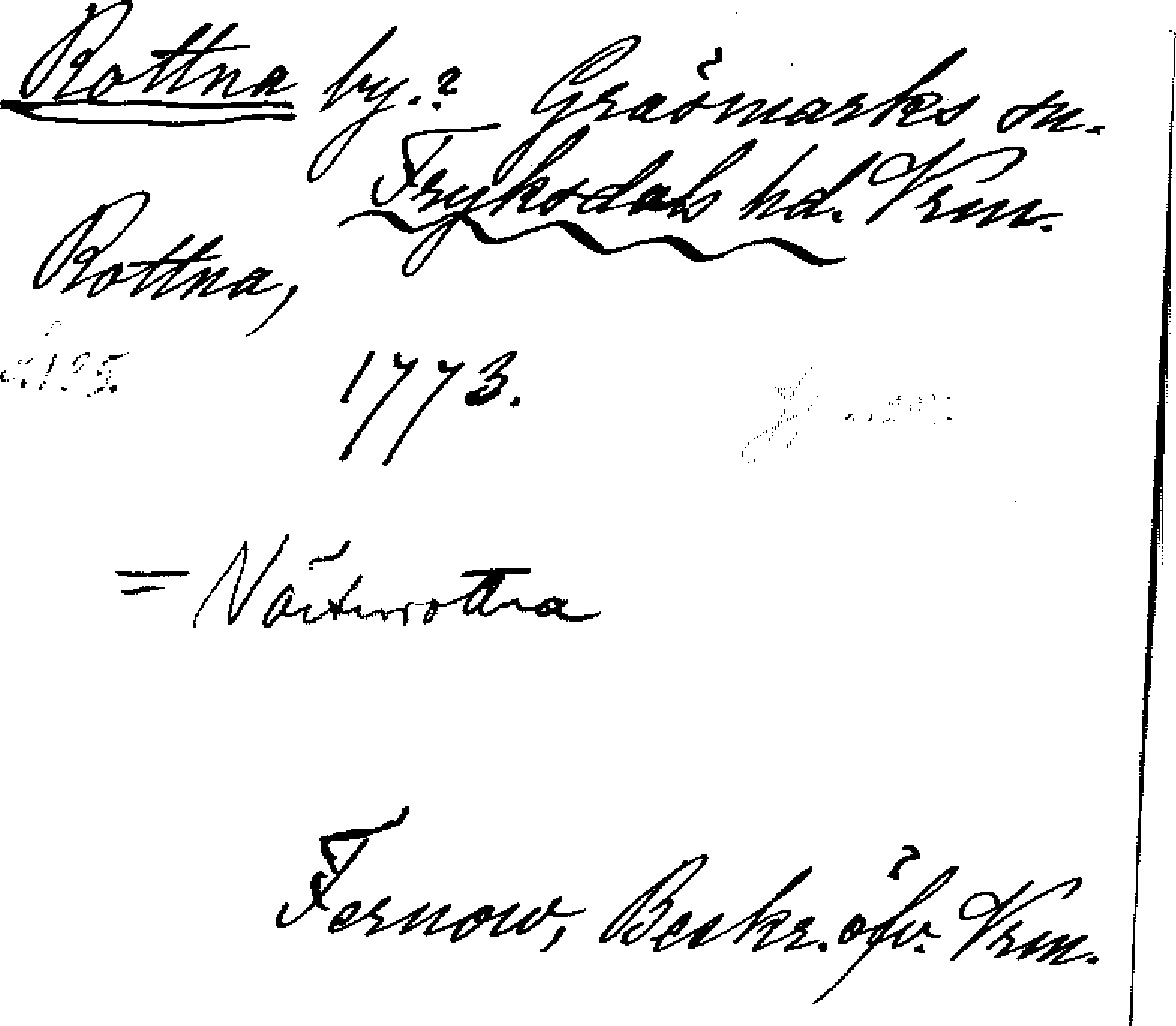 Rottna by.? Gräsmarks sn.
Fryksdals hd. Vrm.
Rottna,
1773.
= Västurottna
Fernow, Beskr. öfv. Vrm.